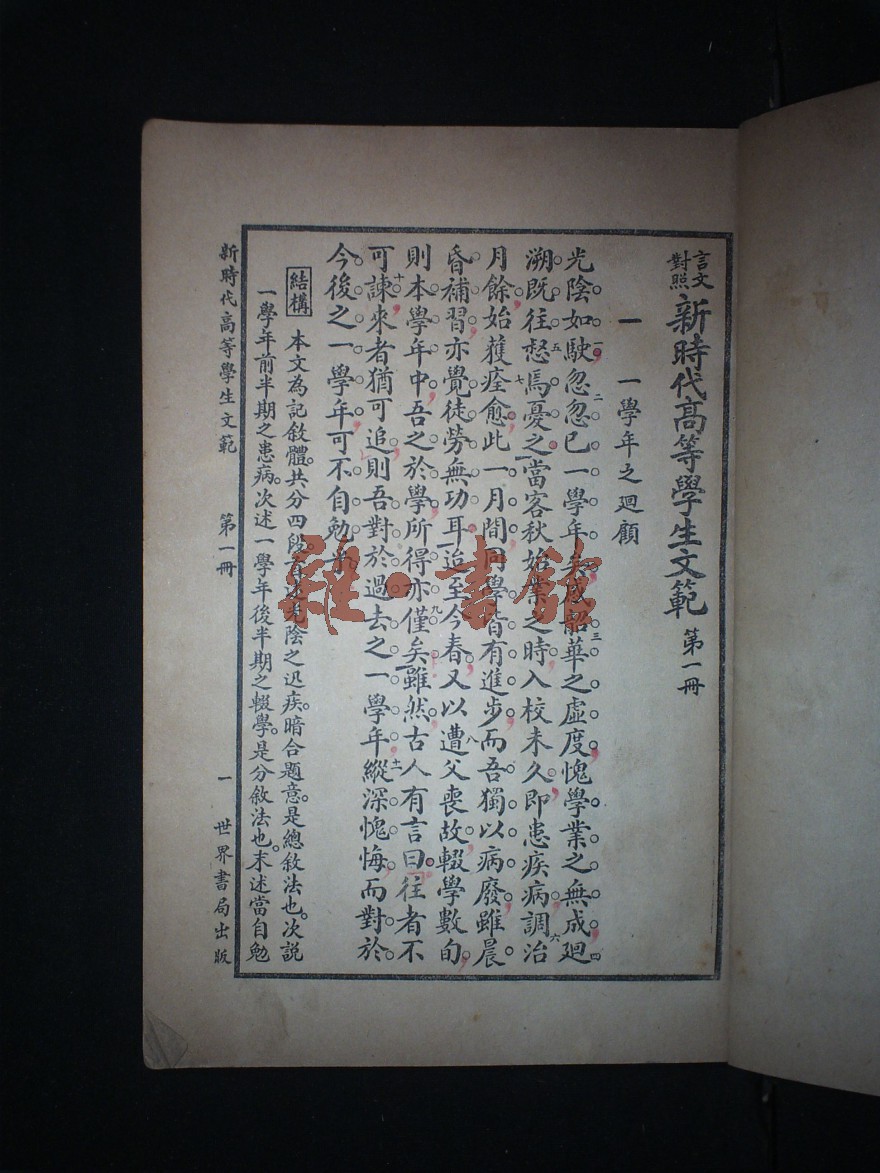 言文對照 新時代高等學生文範 第一冊
一 一學年之迴顧
光陰如駛忽忽已一學年矣感韶華之虛度愧學業之無成迴
溯既往惄焉憂之當客秋始業之時入校未久即患疾病調治
月餘始獲痊愈此一月間同學皆有進步而吾獨以病廢雖晨
昏補習亦覺徒勞無功耳迨至今春又以遭父喪故輟學數旬
則本學年中吾之於學所得亦僅矣雖然古人有言曰往者不
可諫來者猶可追則吾對於過去之一學年縱深愧悔而對於
今後之一學年可不自勉乎
結構 本文為記敘體。共分四段。首述光陰之迅疾。暗合題意。是總敘法也。次説
一學年前半期之患病。次述一學年後半期之輟學。是分敘法也。末述當自勉
新時代高等學生文範 第一冊 一 世界書局出版
雜·書館